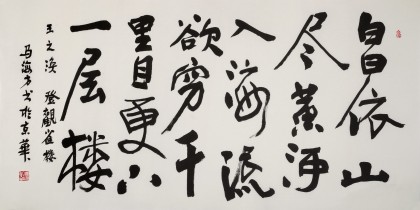 白日依山
尽黄河
入海流
欲穷千
里目更上
一层楼
王之涣 登觀雀楼
马海方书於京華